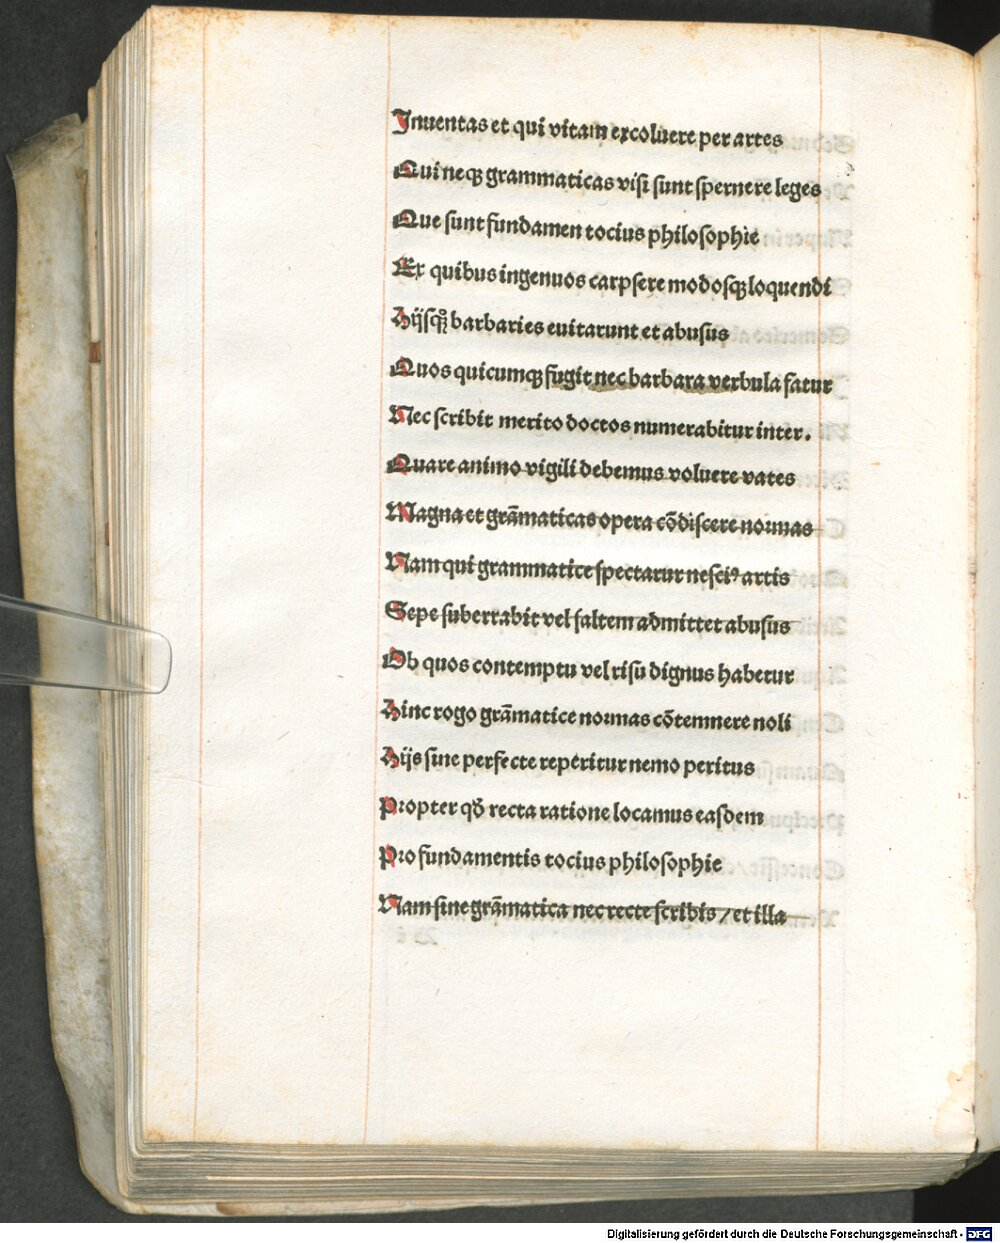 Inuentas et qui vitam excoluere per artes
Qui neqꝫ grammaticas visi sunt spernere leges
Que sunt fundamen tocius philosophie
Ex quibus ingenuos carpsere modosqꝫ loquendi
Hijsqꝫ barbaries euitarunt et abusus
Quos quicumqꝫ fugit nec barbara verbula fatur
Nec scribit merito doctos numerabitur inter.
Quare animo vigili debemus voluere vates
Magna et grāmaticas opera cōdiscere normas
Nam qui grammatice spectatur nesciꝰ artis
Sepe suberrabit vel saltem admittet abusus
Ob quos contemptu vel risu dignus habetur
Hinc rogo grāmatice normas cōtemnere noli
Hijs sine perfecte reperitur nemo peritus
Propter qđ recta ratione locamus easdem
Pro fundamentis tocius philosophie
Nam sine grāmatica nec recte scribis / et illa
Digitalisierung gefördert durch die Deutsche Forschungsgemeinschaft - DFG